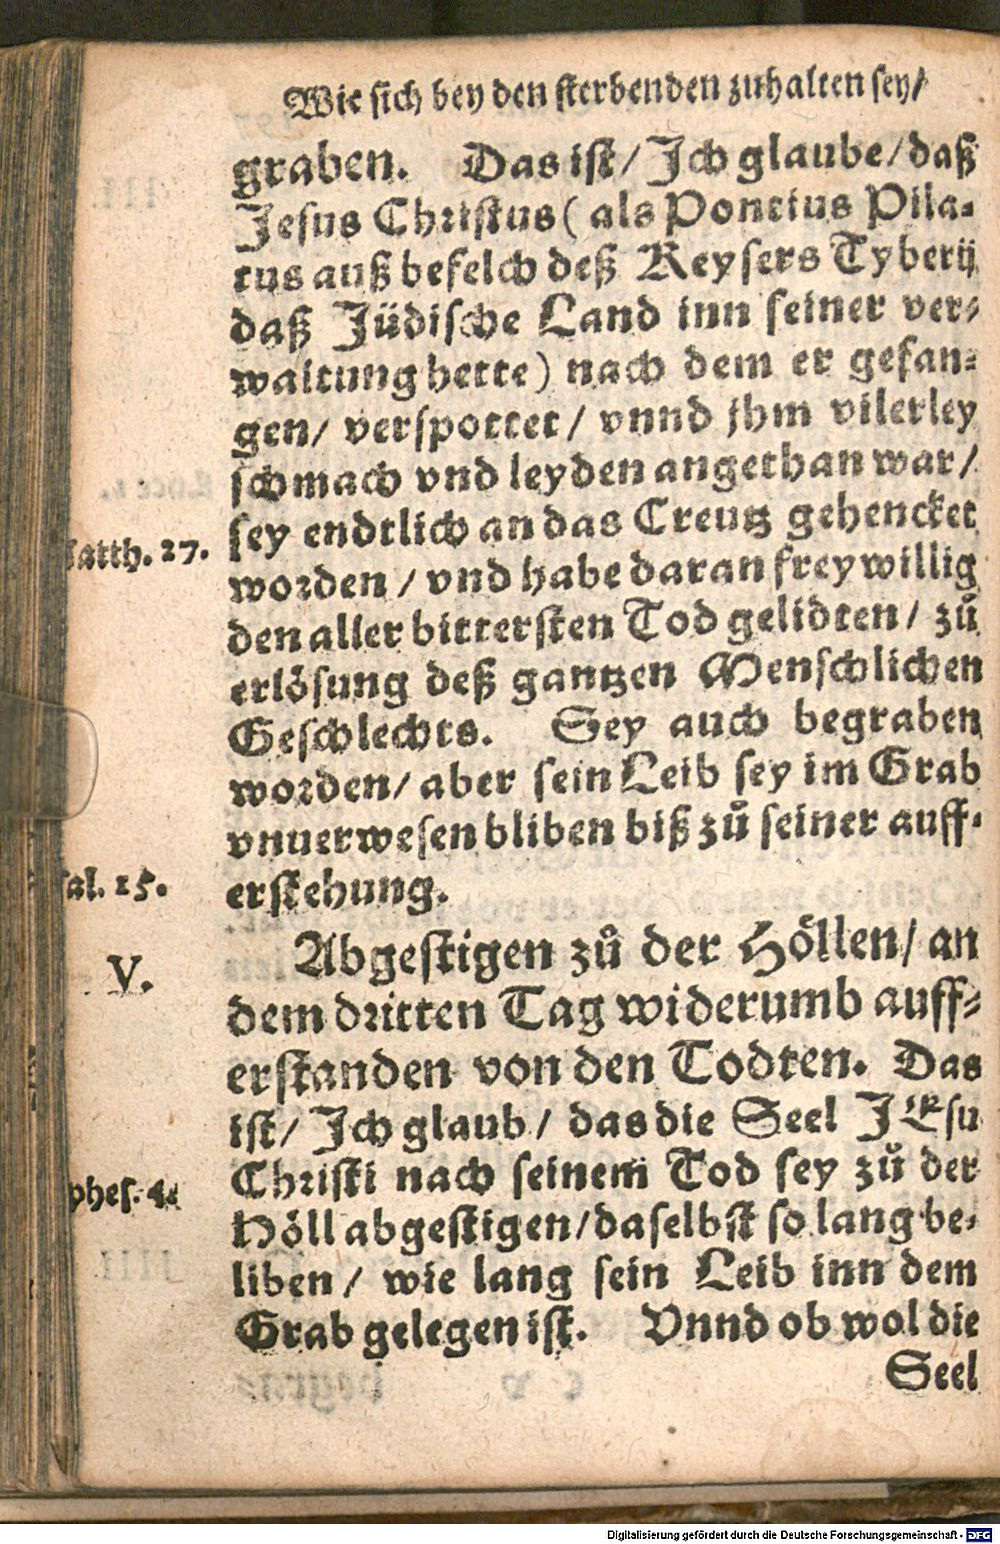 Wie sich bey den sterbenden zuhalten sey/
graben. Das ist/ Ich glaube/ daß
Jesus Christus (als Pontius Pila-
tus auß befelch deß Keysers Tyberij
daß Jüdische Land inn seiner ver-
waltung hette) nach dem er gefan-
gen/ verspottet/ vnnd jhm vilerley
schmach vnd leyden angethan war/
sey endtlich an das Creutz gehencket
atth. 27.
worden/ vnd habe daran freywillig
den aller bittersten Tod gelidten/ zů
erlösung deß gantzen Menschlichen
Geschlechts. Sey auch begraben
worden/ aber sein Leib sey im Grab
vnuerwesen bliben biß zů seiner auff-
sal. 15.
erstehung.
V.
Abgestigen zů der Höllen/ an
dem dritten Tag widerumb auff-
erstanden von den Todten. Das
ist/ Ich glaub/ das die Seel JEsu
Christi nach seinem Tod sey zů der
phes. 4.
Höll abgestigen/ daselbst so lang be-
liben/ wie lang sein Leib inn dem
Grab gelegen ist. Vnnd ob wol die
Seel
Digitalisierung gefördert durch die Deutsche Forschungsgemeinschaft - DFG